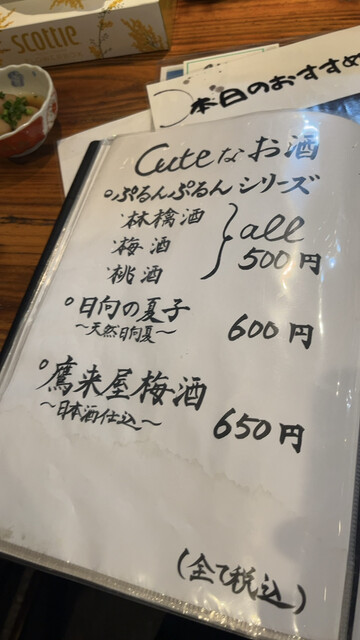 scottie
本日のおすすめ
Cuteなお酒
○ぷるんぷるんシリーズ
・林檎酒
・梅酒
・桃酒
all
500円
○日向の夏子
～天然日向夏～
600円
○鷹来屋梅酒
～日本酒仕込～
650円
(全て税込)